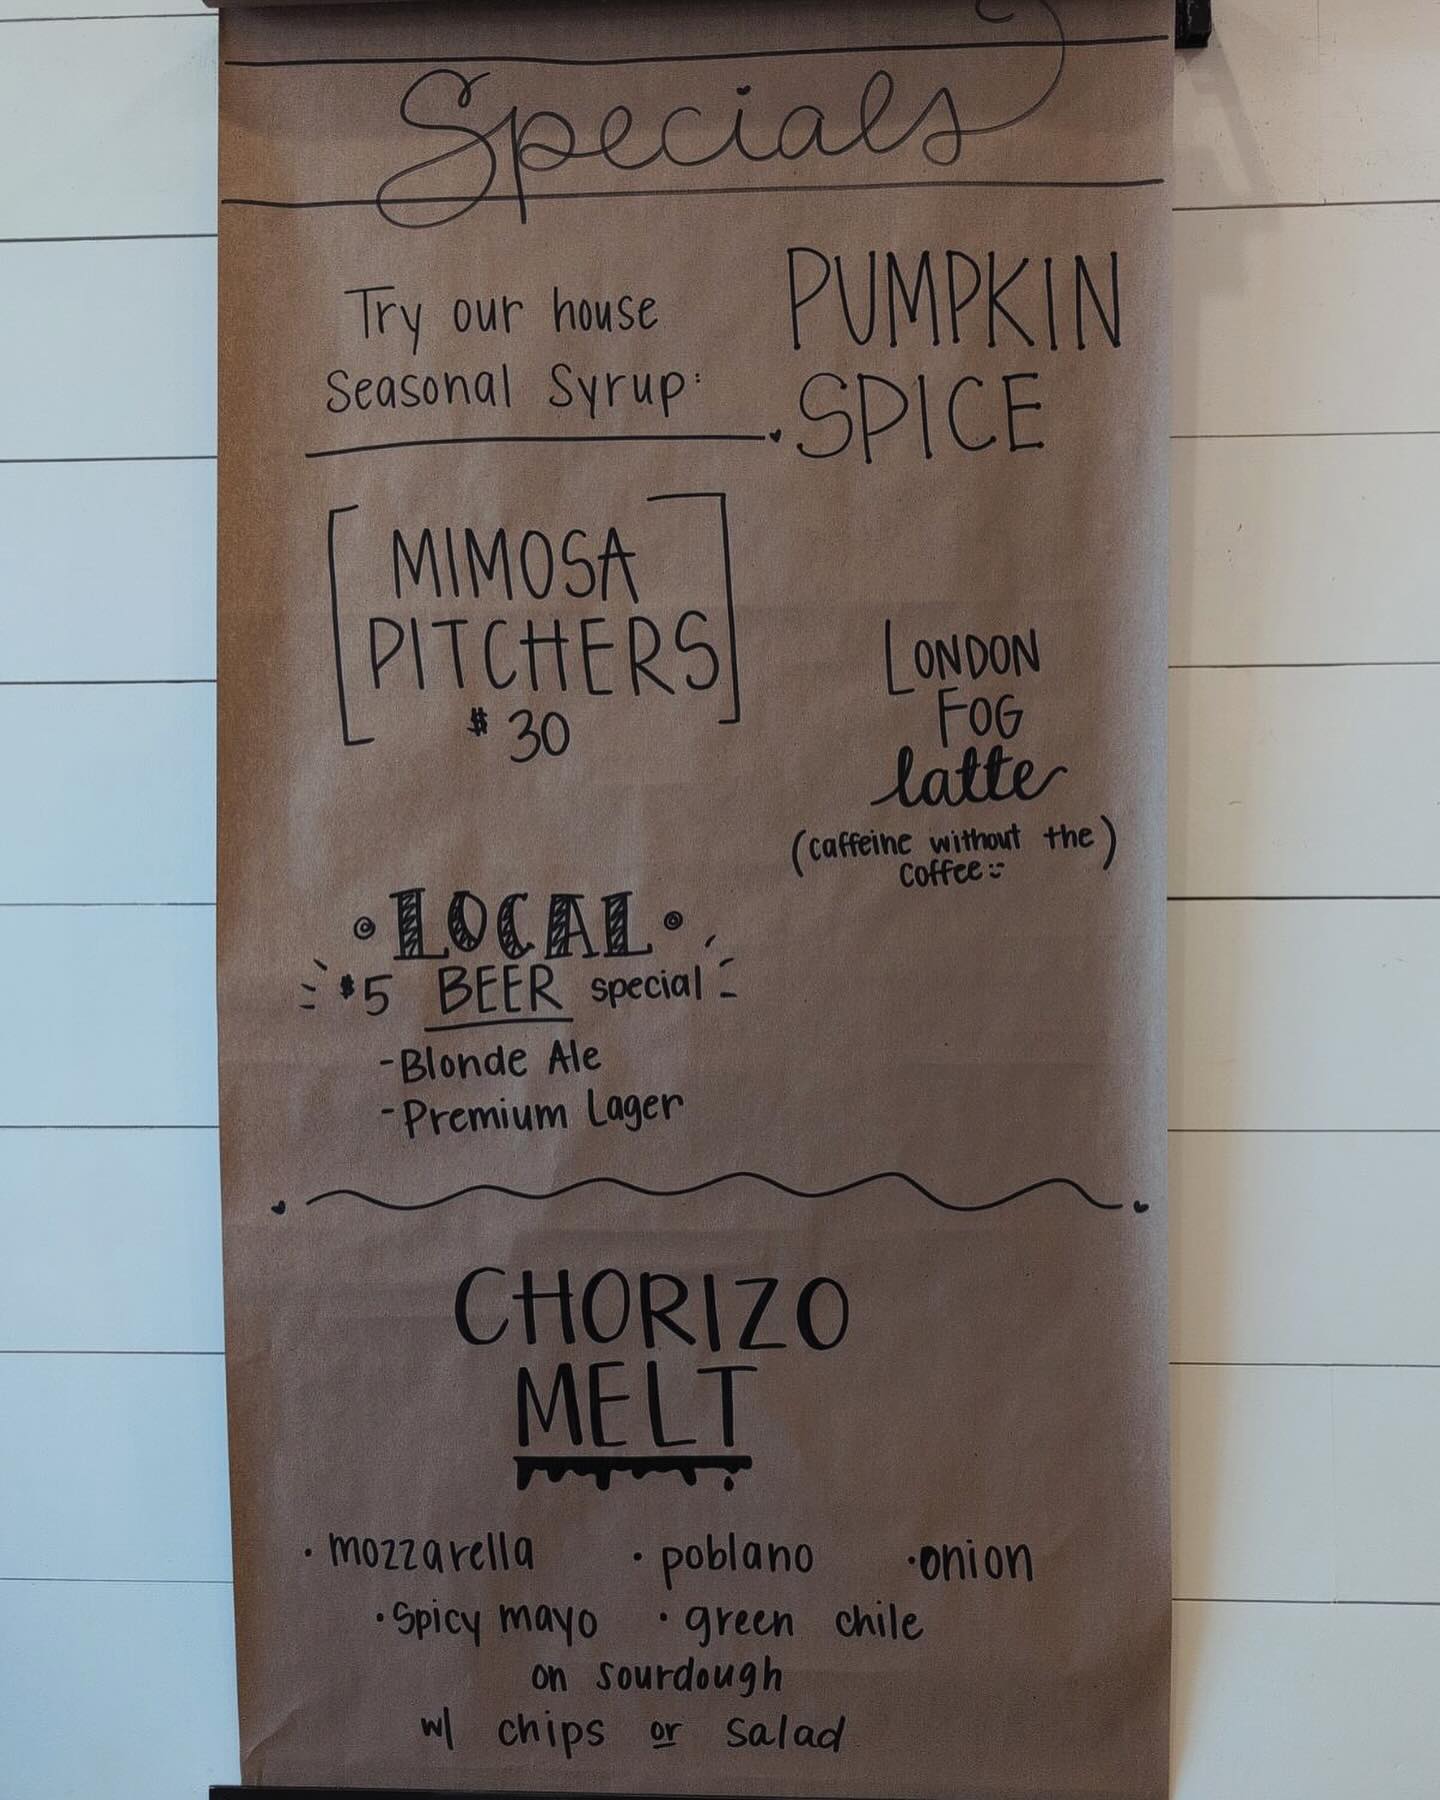 Specials
Try our house
Seasonal Syrup:
PUMPKIN
SPICE
MIMOSA
PITCHERS
$30
LONDON
FOG
latte
(caffeine without the)
coffee :)
LOCAL
$5 BEER special
-Blonde Ale
-Premium Lager
CHORIZO
MELT
· mozzarella · poblano · onion
· Spicy mayo · green chile
on sourdough
w/ chips or salad